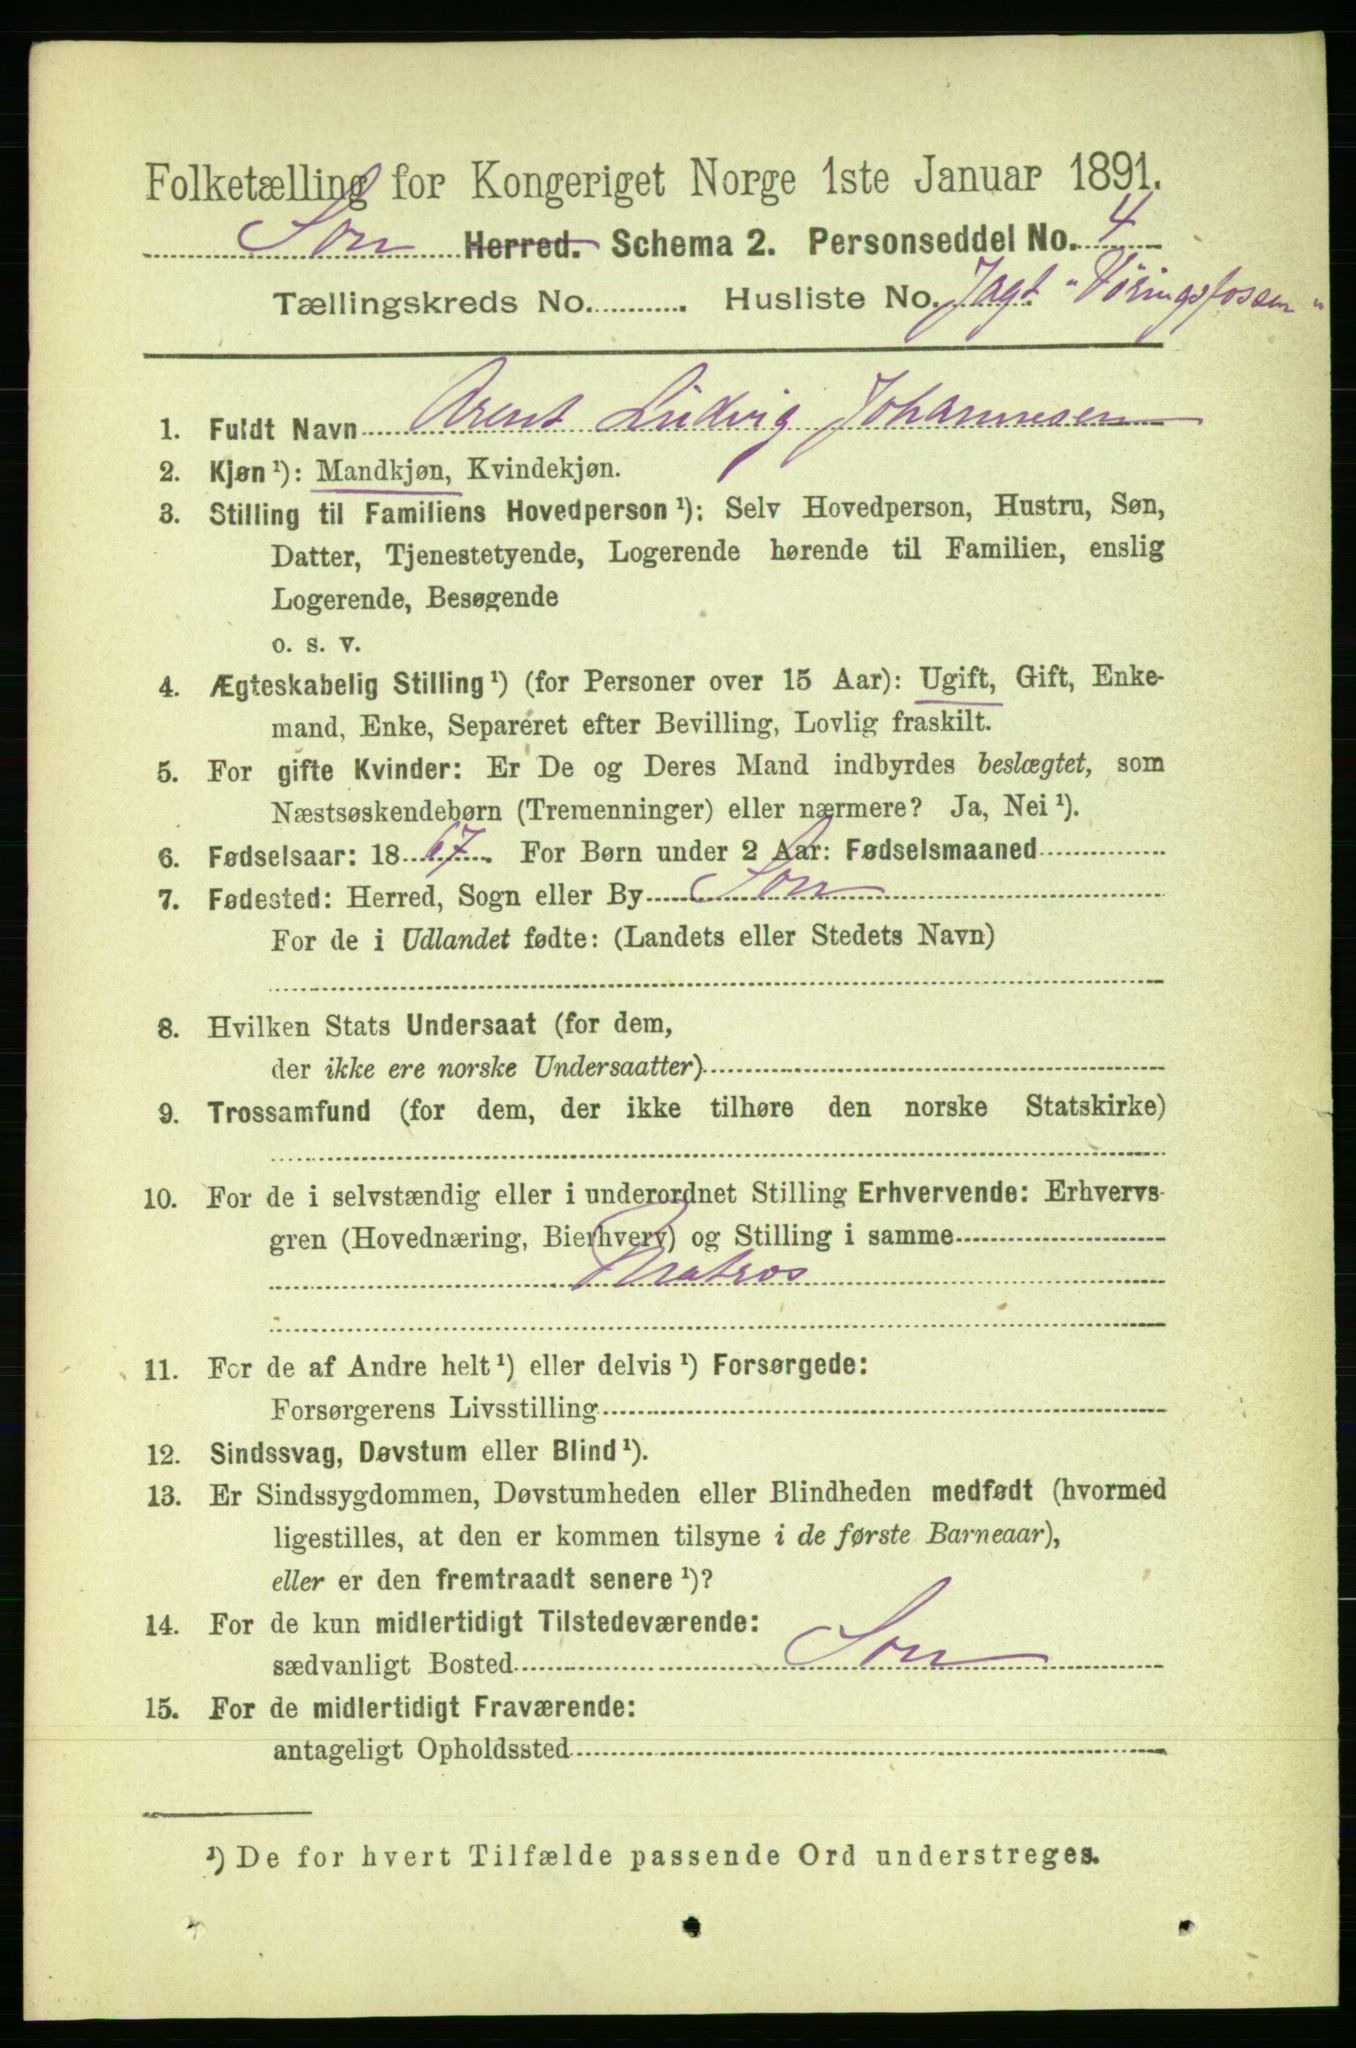 Folketælling for Kongeriget Norge 1ste Januar 1891.
Son Herred. Schema 2. Personseddel No. 4
Tællingskreds No. ............ Husliste No. Jagt "Vöringsfossen"
1. Fuldt Navn Arent Ludvig Johannesen
2. Kjøn ¹): Mandkjøn, Kvindekjøn.
3. Stilling til Familiens Hovedperson ¹): Selv Hovedperson, Hustru, Søn,
Datter, Tjenestetyende, Logerende hørende til Familien, enslig
Logerende, Besøgende
o. s. v.
4. Ægteskabelig Stilling ¹) (for Personer over 15 Aar): Ugift, Gift, Enke-
mand, Enke, Separeret efter Bevilling, Lovlig fraskilt.
5. For gifte Kvinder: Er De og Deres Mand indbyrdes beslægtet, som
Næstsøskendebørn (Tremenninger) eller nærmere? Ja, Nei ¹).
6. Fødselsaar: 1867. For Børn under 2 Aar: Fødselsmaaned
7. Fødested: Herred, Sogn eller By Son
For de i Udlandet fødte: (Landets eller Stedets Navn)
8. Hvilken Stats Undersaat (for dem,
der ikke ere norske Undersaatter)
9. Trossamfund (for dem, der ikke tilhøre den norske Statskirke)
10. For de i selvstændig eller i underordnet Stilling Erhvervende: Erhvervs-
gren (Hovednæring, Bierhverv) og Stilling i samme
Matros
11. For de af Andre helt ¹) eller delvis ¹) Forsørgede:
Forsørgerens Livsstilling
12. Sindssvag, Døvstum eller Blind ¹).
13. Er Sindssygdommen, Døvstumheden eller Blindheden medfødt (hvormed
ligestilles, at den er kommen tilsyne i de første Barneaar),
eller er den fremtraadt senere ¹)?
14. For de kun midlertidigt Tilstedeværende:
sædvanligt Bosted Son
15. For de midlertidigt Fraværende:
antageligt Opholdssted
¹) De for hvert Tilfælde passende Ord understreges.